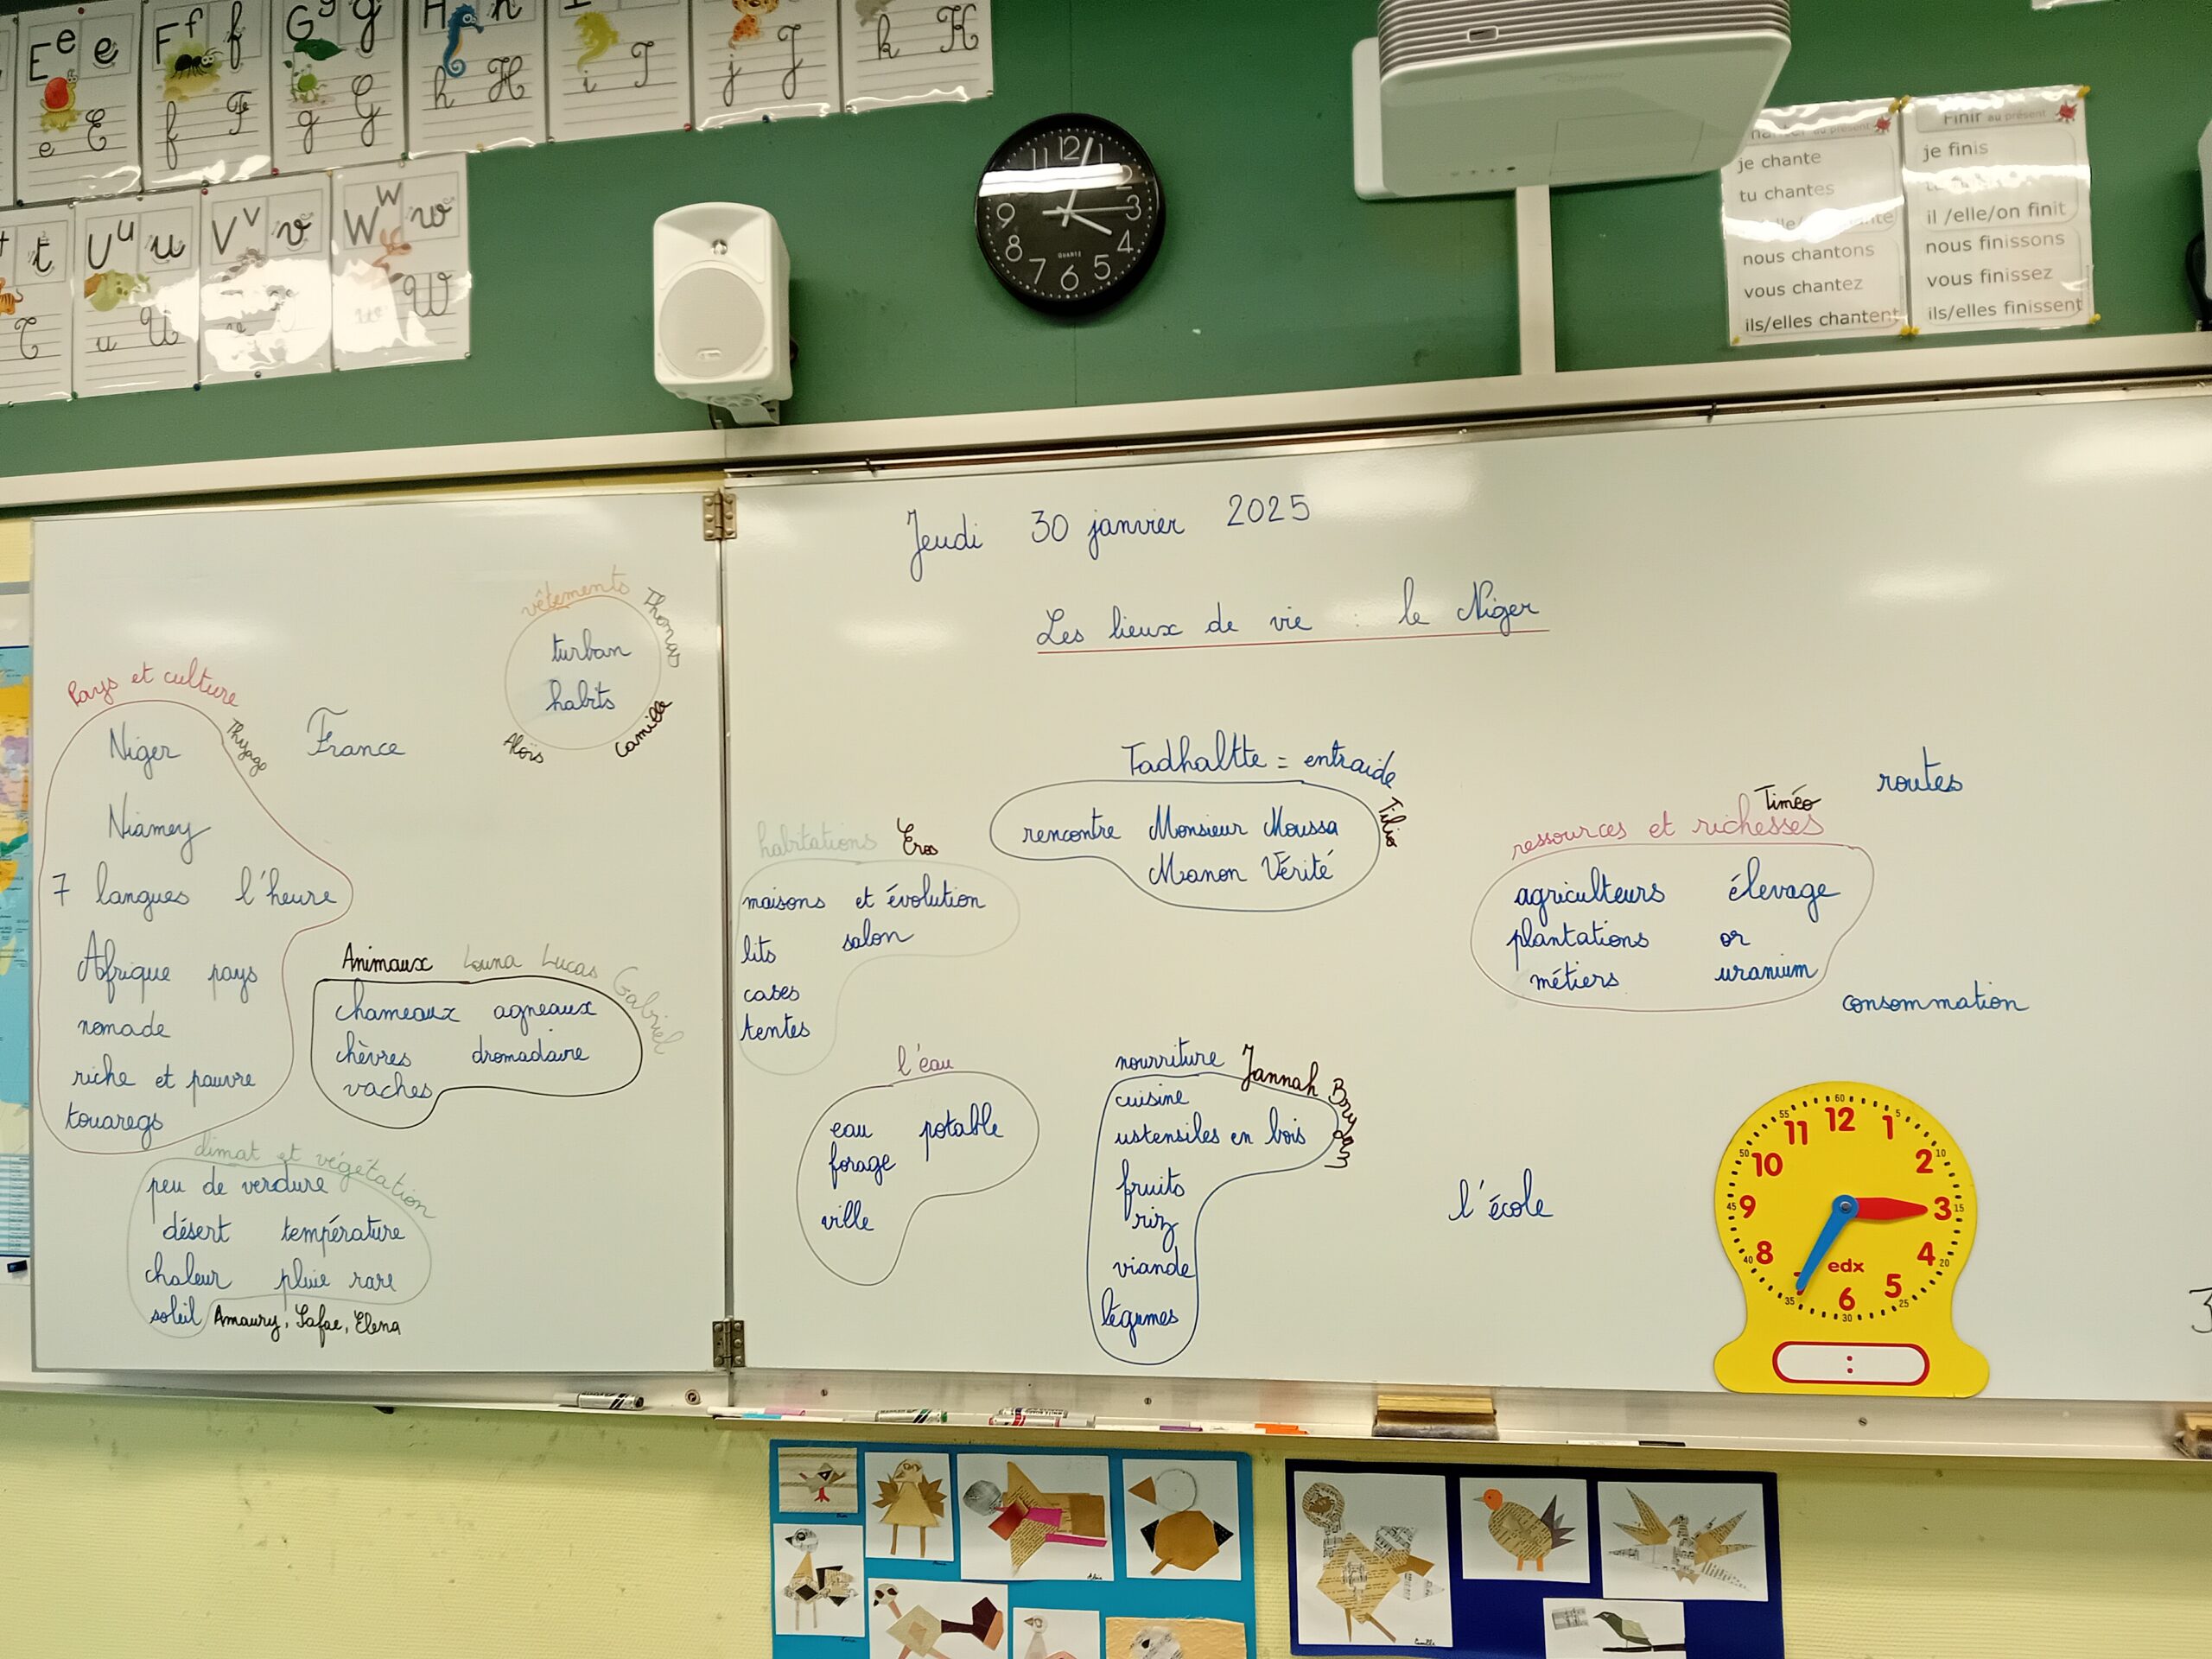 E e e
F f f
G g g
H h
e E
f F
g G
h H
i I
j J
k K
t
U u u
V v v
W w w
T
u U
W
12
1
2
3
4
5
6
7
8
9
11
QUARTZ
au présent
je chante
tu chantes
nous chantons
vous chantez
ils/elles chantent
Finir au présent
je finis
il /elle/on finit
nous finissons
vous finissez
ils/elles finissent
vêtements Thomas
turban
habits
Aloïs Camille
Pays et culture
Thyago
Niger
France
Niamey
7 langues l'heure
Afrique pays
nomade
riche et pauvre
touaregs
Animaux Louna Lucas Gabriel
chameaux agneaux
chèvres dromadaire
vaches
climat et végétation
peu de verdure
désert température
chaleur pluie rare
soleil Amaury, Safae, Elena
Jeudi 30 janvier 2025
Les lieux de vie : le Niger
Tadhaltte = entraide
Tilio
rencontre Monsieur Moussa
Manon Vérité
habitations Eros
maisons et évolution
lits salon
cases
tentes
Timéo
ressources et richesses
agriculteurs élevage
plantations or
métiers uranium
routes
consommation
l'eau
eau potable
forage
ville
nourriture Jannah Bryam
cuisine
ustensiles en bois
fruits
riz
viande
légumes
l'école
60
55 12 5
11 1
50 10 2 10
45 9 3 15
40 8 4 20
edx
35 5
6 25
30
: